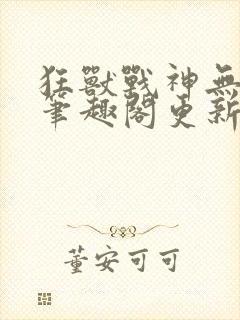 狂獸戰神無
筆趣閣更新
董安可可